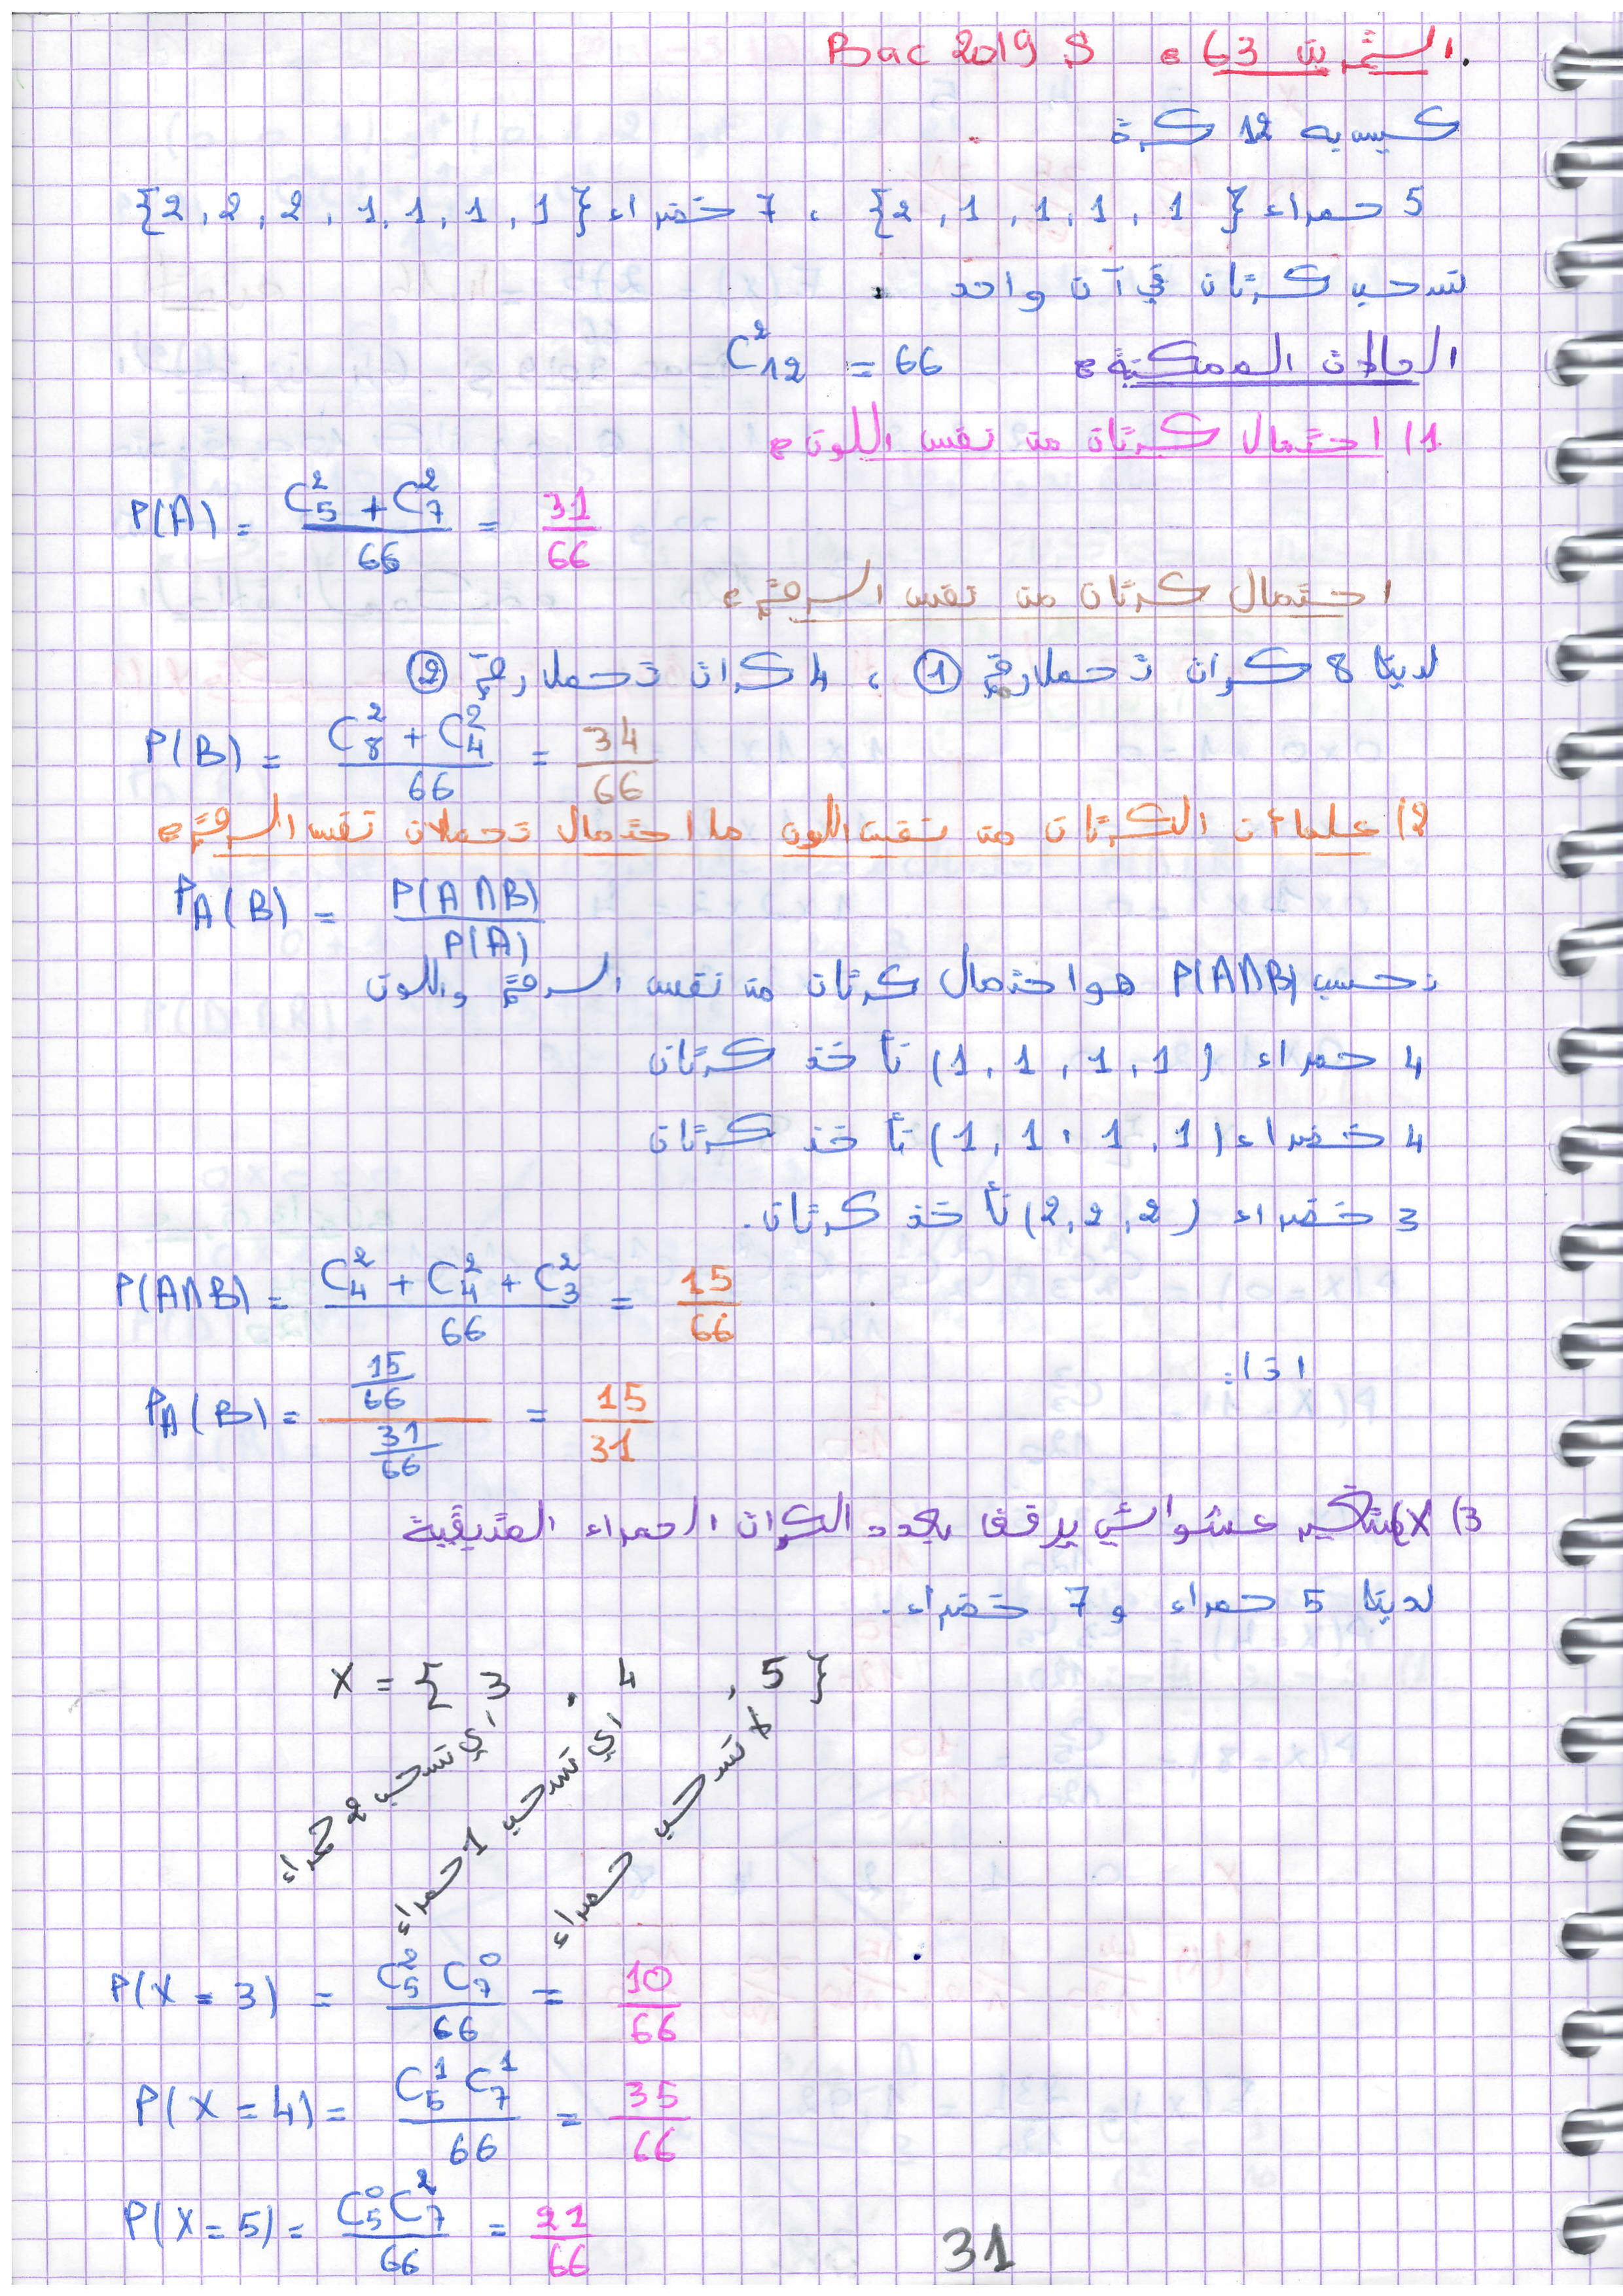 التمرين 63 : Bac 2019 S
كيس به 12 كرة
5 حمراء {2, 1, 1, 1, 1} ، 7 خضراء {2, 2, 2, 1, 1, 1, 1}
نسحب كرتان في آن واحد
الحالات الممكنة : C²₁₂ = 66
1) احتمال كرتان من نفس اللون :
P(A) = (C²₅ + C²₇)/66 = 31/66
احتمال كرتان من نفس الرقم :
لدينا 8 كرات تحمل رقم ① ، 4 كرات تحمل رقم ②
P(B) = (C²₈ + C²₄)/66 = 34/66
2) علما أن الكرتان من نفس اللون ما احتمال تحملان نفس الرقم :
P_A(B) = P(A∩B)/P(A)
نحسب P(A∩B) هو احتمال كرتان من نفس الرقم واللون
4 حمراء (1, 1, 1, 1) نأخذ كرتان
4 خضراء (1, 1, 1, 1) نأخذ كرتان
3 خضراء (2, 2, 2) نأخذ كرتان.
P(A∩B) = (C²₄ + C²₄ + C²₃)/66 = 15/66
اذا:
P_A(B) = (15/66)/(31/66) = 15/31
3) X متغير عشوائي يرفق بعدد الكرات الحمراء المتبقية
لدينا 5 حمراء و 7 خضراء.
X = {3 , 4 , 5}
أي نسحب 2 حمراء
أي نسحب 1 حمراء
لا نسحب حمراء
P(X = 3) = C²₅ C⁰₇/66 = 10/66
P(X = 4) = C¹₅ C¹₇/66 = 35/66
P(X = 5) = C⁰₅ C²₇/66 = 21/66
31